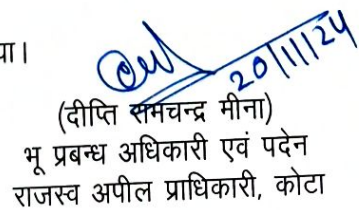 या।
20/11/24
(दीप्ति रामचन्द्र मीना)
भू प्रबन्ध अधिकारी एवं पदेन
राजस्व अपील प्राधिकारी, कोटा